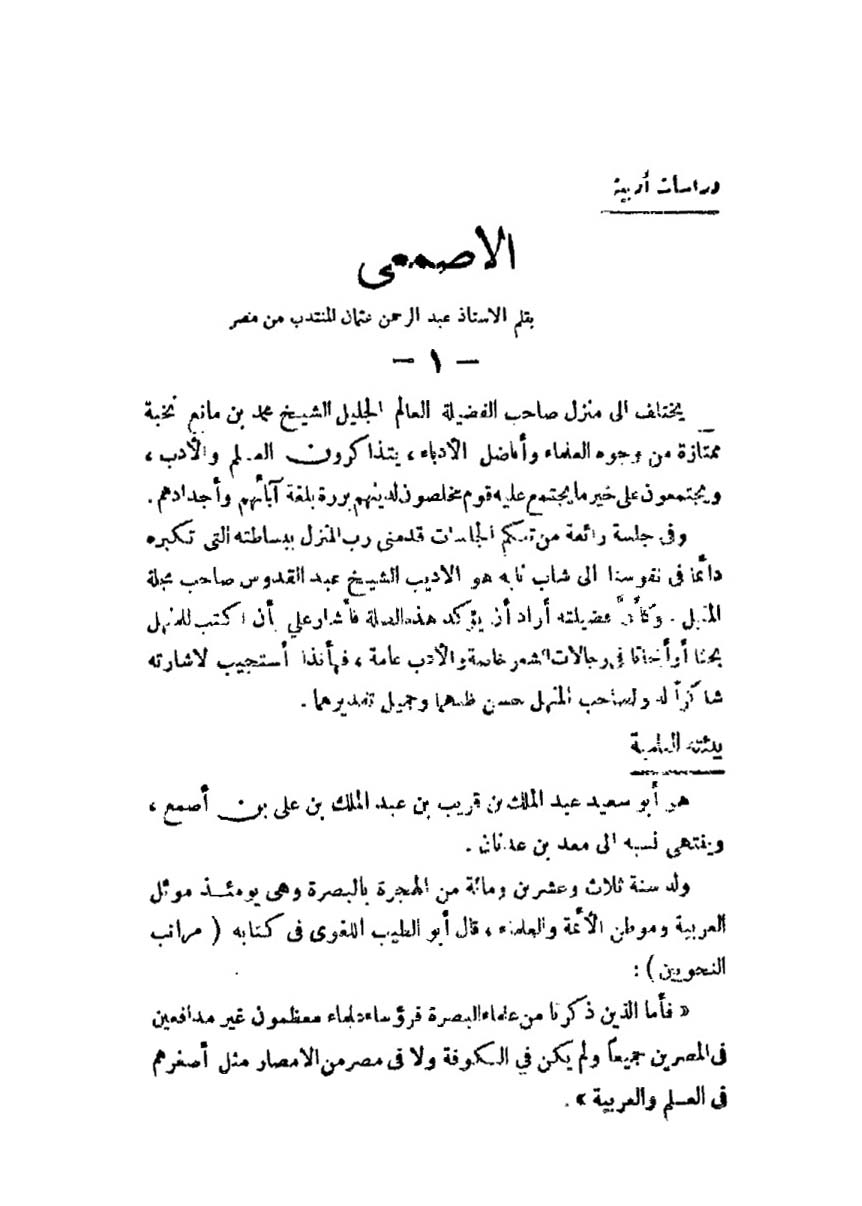 دراسات أدبية
الاصمعى
بقلم الاستاذ عبد الرحمن عثمان المنتدب من مصر
— ١ —
يختلف الى منزل صاحب الفضيلة العالم الجليل الشيخ محمد بن مانع نخبة
ممتازة من وجوه العلماء وأفاضل الأدباء ، يتذاكرون العلم والأدب ،
ويجتمعون على خير ما يجتمع عليه قوم مخلصون لدينهم بررة بلغة آبائهم وأجدادهم .
وفى جلسة رائعة من تلكم الجلسات قدمنى رب المنزل ببساطته التى تكبره
دائما فى نفوسنا الى شاب نابه هو الاديب الشيخ عبد القدوس صاحب مجلة
المنهل . وكأنَّ فضيلته أراد أن يؤكد هذه الصلة فأشار علي بأن اكتب للمنهل
بحثا أو أبحاثا فى رجالات الشعر خاصة والأدب عامة ، فهأنذا أستجيب لاشارته
شاكراً له ولصاحب المنهل حسن ظنهما وجميل تقديرهما .
بيئته العلمية
هو أبو سعيد عبد الملك بن قريب بن عبد الملك بن على بن أصمع ،
وينتهي نسبه الى معد بن عدنان .
ولد سنة ثلاث وعشرين ومائة من الهجرة بالبصرة وهى يومئذ موئل
العربية وموطن الأئمة والعلماء ، قال أبو الطيب اللغوى فى كتابه ( مراتب
النحويين ) :
« فأما الذين ذكرنا من علماء البصرة فرؤساء علماء معظمون غير مدافعين
فى المصرين جميعاً ولم يكن في الكوفة ولا فى مصر من الامصار مثل أصغرهم
فى العلم والعربية » .